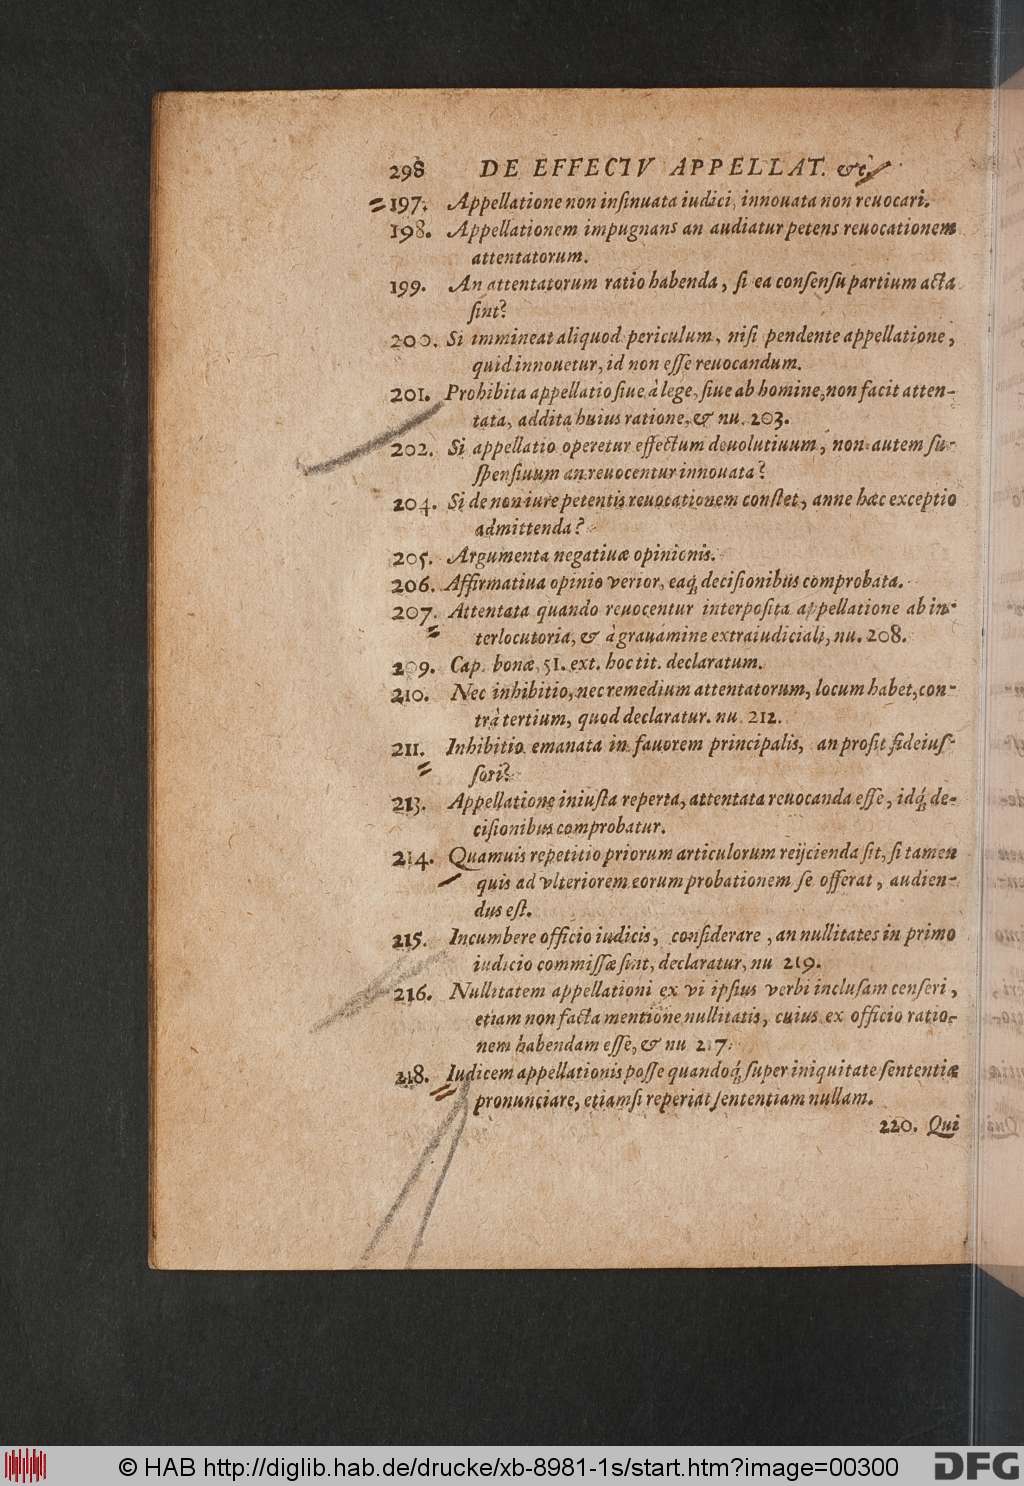 298 DE EFFECTV APPELLAT. &c.
197. Appellatione non inſinuata iudici, innouata non reuocari.
198. Appellationem impugnans an audiatur petens reuocationem
attentatorum.
199. An attentatorum ratio habenda, ſi ea conſenſu partium acta
ſint?
200. Si immineat aliquod periculum, niſi pendente appellatione,
quid innouetur, id non eſſe reuocandum.
201. Prohibita appellatio ſiue à lege, ſiue ab homine, non facit atten-
tata, addita huius ratione, & nu. 203.
202. Si appellatio operetur effectum deuolutiuum, non autem ſu-
ſpenſiuum an reuocentur innouata?
204. Si de non iure petentis reuocationem conſtet, anne hæc exceptio
admittenda?
205. Argumenta negatiuæ opinionis.
206. Affirmatiua opinio verior, eaq́; deciſionibus comprobata.
207. Attentata quando reuocentur interpoſita appellatione ab in-
terlocutoria, & à grauamine extraiudiciali, nu. 208.
209. Cap. bonæ, 51. ext. hoc tit. declaratum.
210. Nec inhibitio, nec remedium attentatorum, locum habet, con-
trà tertium, quod declaratur. nu. 212.
211. Inhibitio emanata in fauorem principalis, an proſit fideiuſ-
ſori?
213. Appellatione iniuſta reperta, attentata reuocanda eſſe, idq́; de-
ciſionibus comprobatur.
214. Quamuis repetitio priorum articulorum reijcienda ſit, ſi tamen
quis ad vlteriorem eorum probationem ſe offerat, audien-
dus eſt.
215. Incumbere officio iudicis, conſiderare, an nullitates in primo
iudicio commiſſæ ſint, declaratur, nu 219.
216. Nullitatem appellationi ex vi ipſius verbi incluſam cenſeri,
etiam non facta mentione nullitatis, cuius ex officio ratio-
nem habendam eſſe, & nu 217.
218. Iudicem appellationis poſſe quandoq́; ſuper iniquitate ſententiæ
pronunciare, etiamſi reperiat ſententiam nullam.
220. Qui
© HAB http://diglib.hab.de/drucke/xb-8981-1s/start.htm?image=00300
DFG